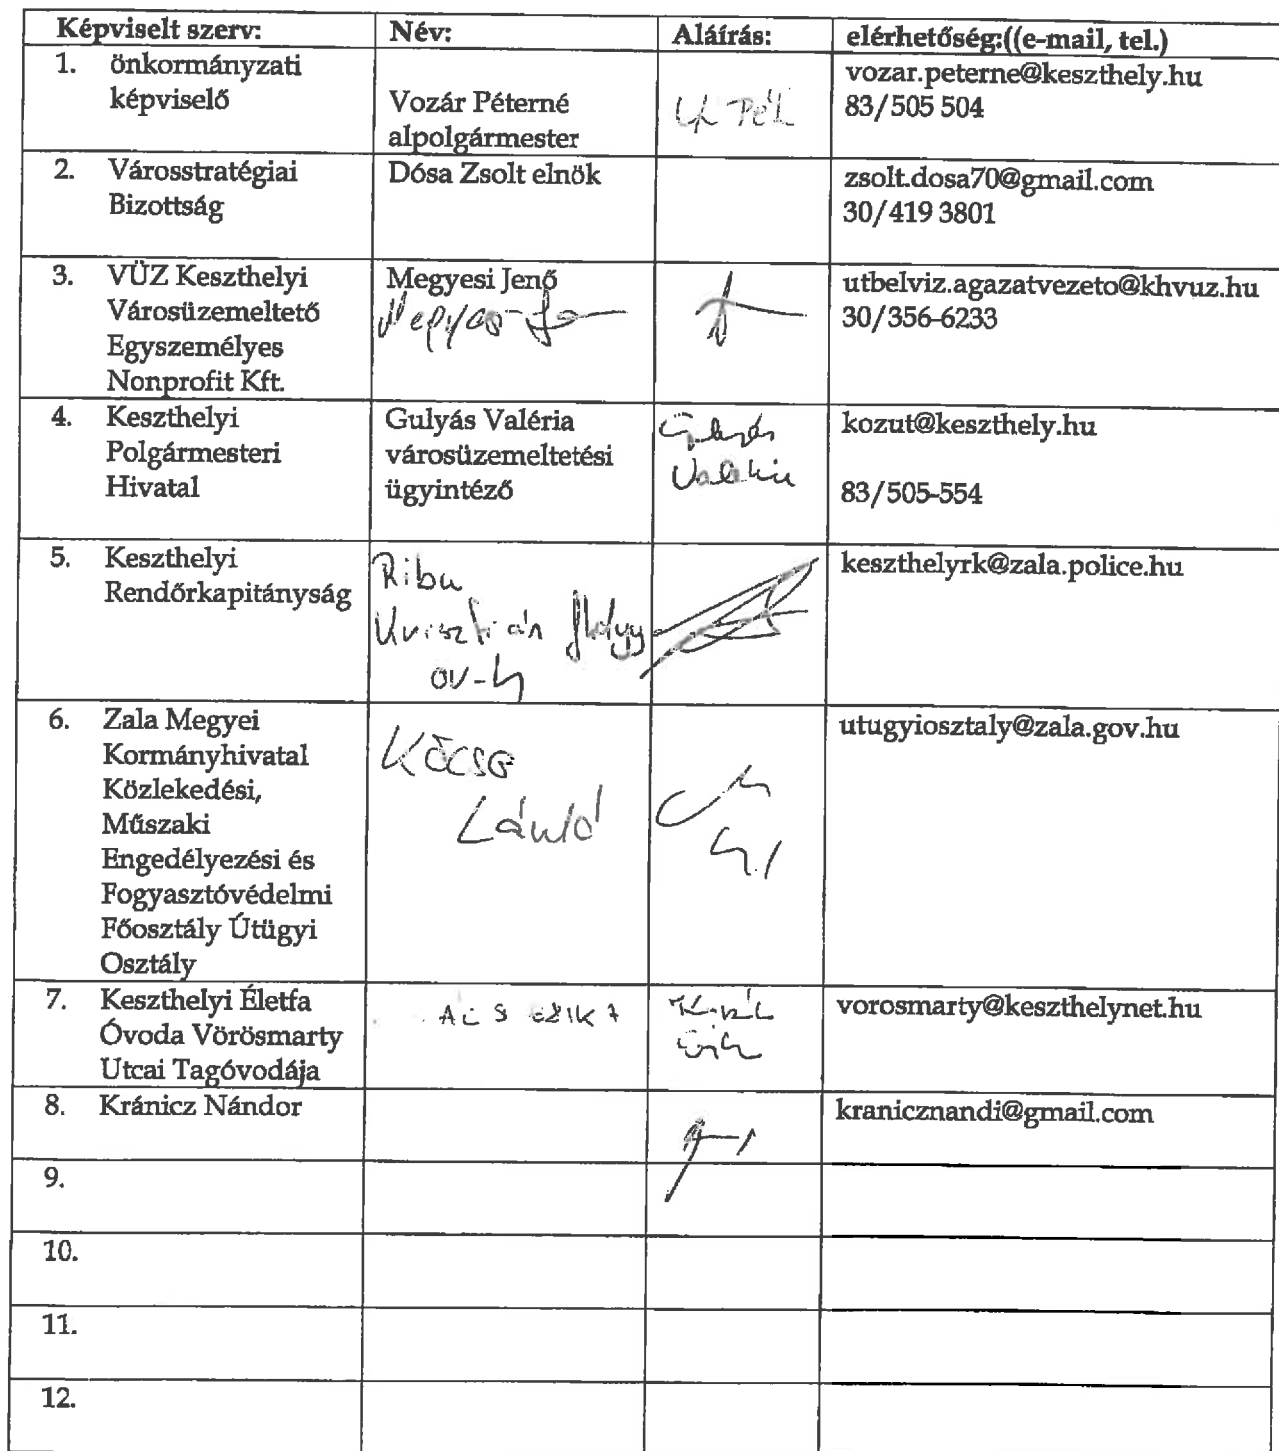 Képviselt szerv: Név: Aláírás: elérhetőség:((e-mail, tel.)
1. önkormányzati
képviselő
Vozár Péterné
alpolgármester
vozar.peterne@keszthely.hu
83/505 504
2. Városstratégiai
Bizottság
Dósa Zsolt elnök
zsolt.dosa70@gmail.com
30/419 3801
3. VÜZ Keszthelyi
Városüzemeltető
Egyszemélyes
Nonprofit Kft.
Megyesi Jenő
utbelviz.agazatvezeto@khvuz.hu
30/356-6233
4. Keszthelyi
Polgármesteri
Hivatal
Gulyás Valéria
városüzemeltetési
ügyintéző
Gulyás
Valéria
kozut@keszthely.hu
83/505-554
5. Keszthelyi
Rendőrkapitányság
Krisztián
keszthelyrk@zala.police.hu
6. Zala Megyei
Kormányhivatal
Közlekedési,
Műszaki
Engedélyezési és
Fogyasztóvédelmi
Főosztály Útügyi
Osztály
László
utugyiosztaly@zala.gov.hu
7. Keszthelyi Életfa
Óvoda Vörösmarty
Utcai Tagóvodája
vorosmarty@keszthelynet.hu
8. Kránicz Nándor
kranicznandi@gmail.com
9.
10.
11.
12.